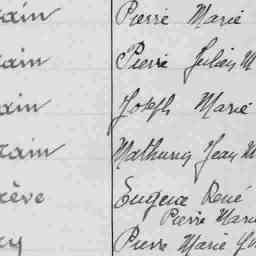 rain Pierre Marie
rain Pierre Julien M
rain Joseph Marie
rain Mathurin Jean M
rève Eugène René
Pierre Marie
ry Pierre Marie